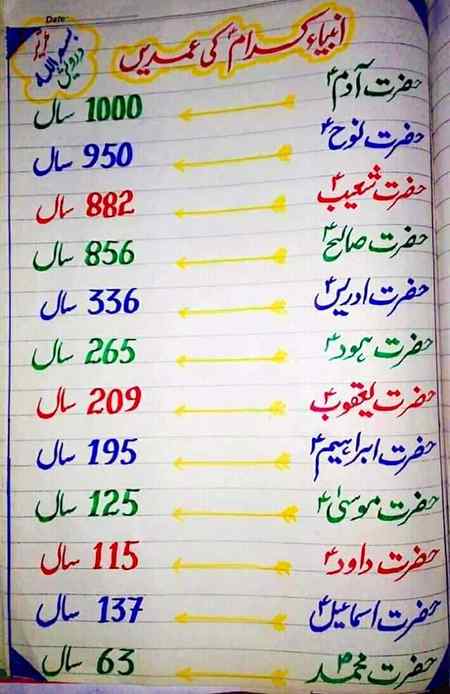 Date:
بسم اللہ
انبیاء کرام کی عمریں
حضرت آدمؑ 1000 سال
حضرت نوحؑ 950 سال
حضرت شعیبؑ 882 سال
حضرت صالحؑ 856 سال
حضرت ادریسؑ 336 سال
حضرت ہودؑ 265 سال
حضرت یعقوبؑ 209 سال
حضرت ابراہیمؑ 195 سال
حضرت موسیٰؑ 125 سال
حضرت داودؑ 115 سال
حضرت اسماعیلؑ 137 سال
حضرت محمدؐ 63 سال